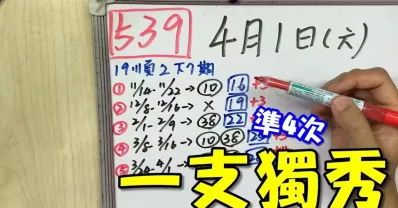 539 4月1日(六)
19順2下7期
① 11/14-11/22→⑩ 16 +3
② 12/8-12/16→× 19 +3
③ 2/1-2/9→㊳ 22
④ 3/8-3/16→⑩ ㊳ 25
⑤ 3/24-4/1
準4次
一支獨秀